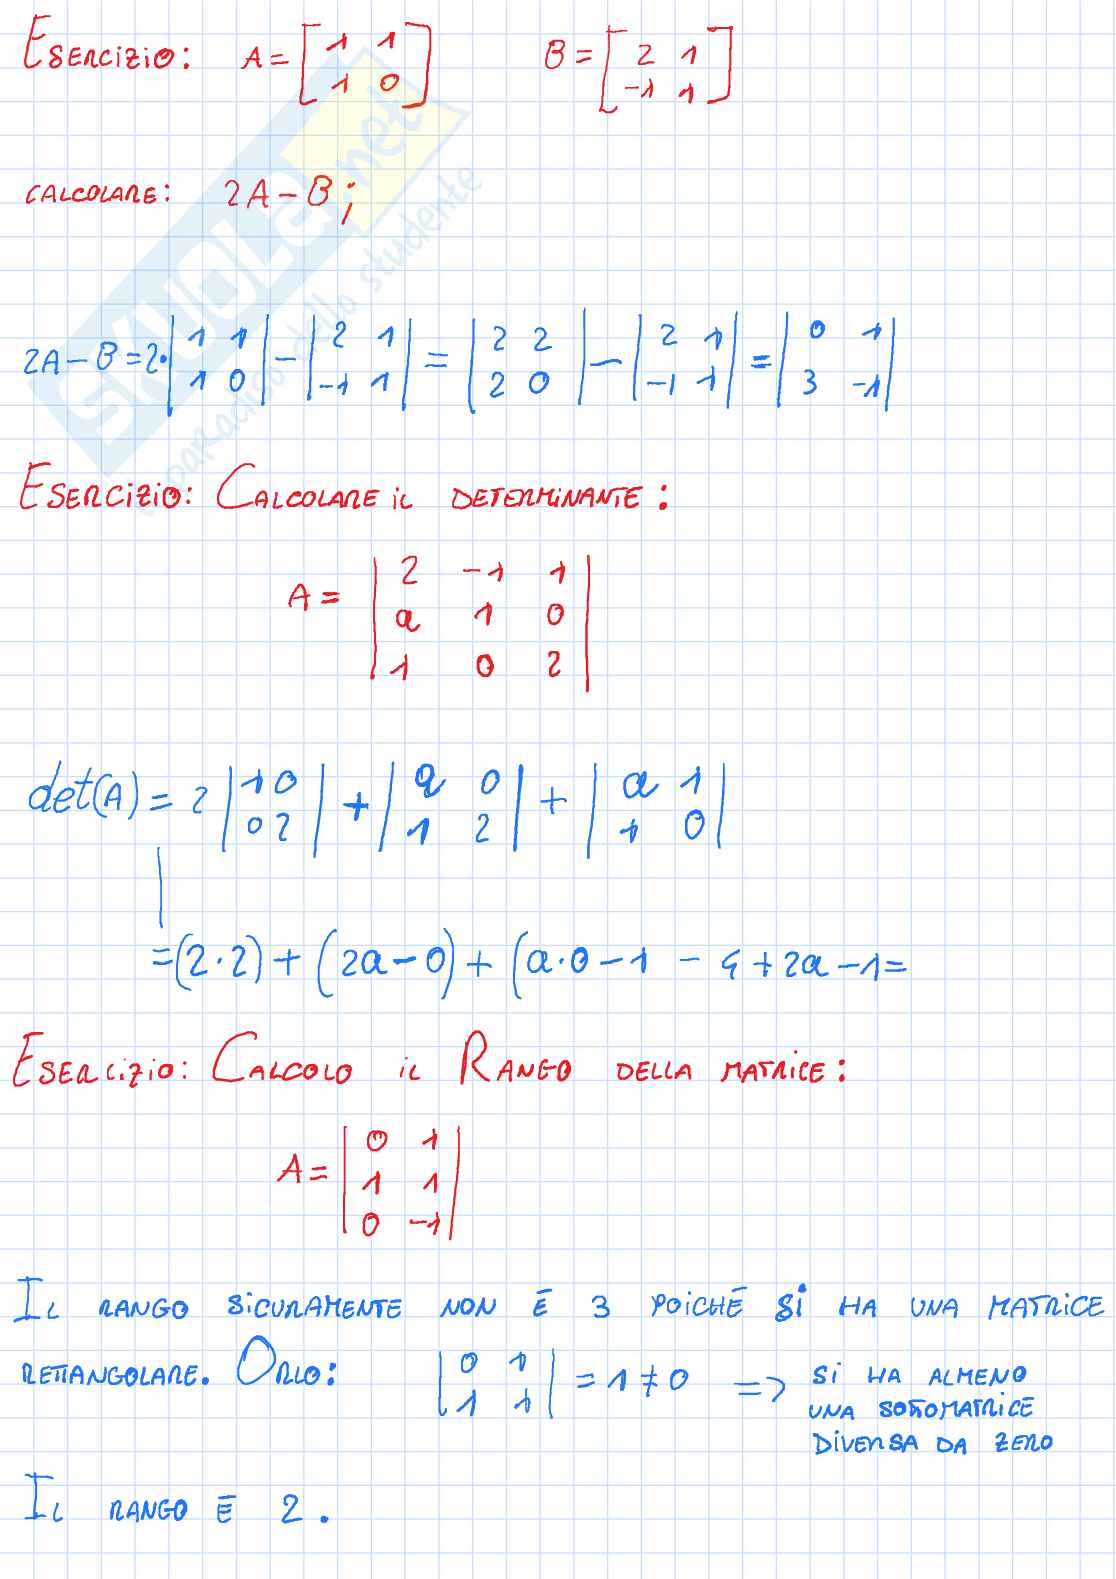 ESERCIZIO: A = [ 1 1 B = [ 2 1
1 0 ] -1 1 ]
CALCOLARE: 2A - B;
2A - B = 2· | 1 1 | - | 2 1 | = | 2 2 | - | 2 1 | = | 0 1 |
| 1 0 | | -1 1 | | 2 0 | | -1 1 | | 3 -1 |
ESERCIZIO: CALCOLARE IL DETERMINANTE:
A = | 2 -1 1 |
| a 1 0 |
| 1 0 2 |
det(A) = 2 | 1 0 | + | a 0 | + | a 1 |
| 0 2 | | 1 2 | | 1 0 |
= (2·2) + (2a - 0) + (a·0 - 1 - 4 + 2a - 1 =
ESERCIZIO: CALCOLO IL RANGO DELLA MATRICE:
A = | 0 1 |
| 1 1 |
| 0 -1 |
IL RANGO SICURAMENTE NON È 3 POICHÉ SI HA UNA MATRICE
RETTANGOLARE. ORLO: | 0 1 | = 1 ≠ 0 => SI HA ALMENO
| 1 1 | UNA SOTTOMATRICE
DIVERSA DA ZERO
IL RANGO È 2.
SKUOLA.net
paradiso dello studente